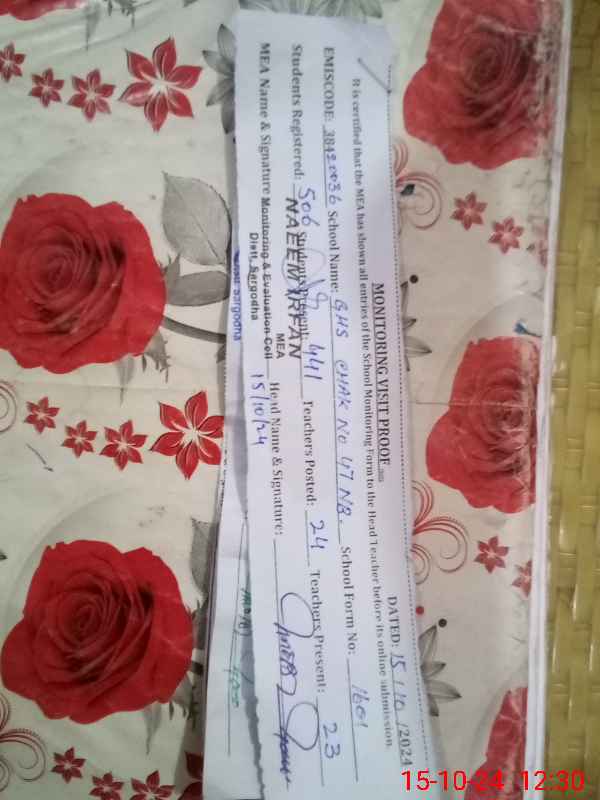 MONITORING VISIT PROOF
DATED: 15/10/2024
It is certified that the MEA has shown all entries of the School Monitoring Form to the Head Teacher before its online submission.
EMISCODE: 38420036 School Name: GHS CHAK NO 47 NB. School Form No: 1601
Students Registered: 506 Students Present: 441 Teachers Posted: 24 Teachers Present: 23
NAEEM IRFAN
MEA
MEA Name & Signature Head Name & Signature:
Monitoring & Evaluation Cell
Distt. Sargodha
15/10/24
Sargodha
15-10-24 12:30